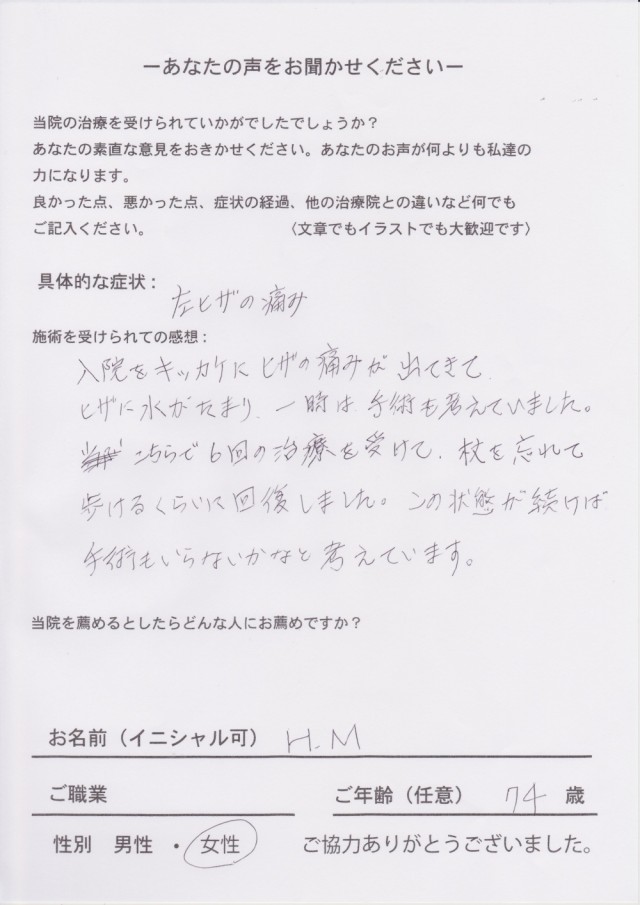 ーあなたの声をお聞かせくださいー
当院の治療を受けられていかがでしたでしょうか?
あなたの素直な意見をおきかせください。あなたのお声が何よりも私達の
力になります。
良かった点、悪かった点、症状の経過、他の治療院との違いなど何でも
ご記入ください。 〈文章でもイラストでも大歓迎です〉
具体的な症状:
左ヒザの痛み
施術を受けられての感想:
入院をキッカケにヒザの痛みが出てきて
ヒザに水がたまり、一時は手術も考えていました。
こちらで6回の治療を受けて、杖を忘れて
歩けるくらいに回後しました。この状態が続けば
手術もいらないかなと考えています。
当院を薦めるとしたらどんな人にお薦めですか?
お名前(イニシャル可) H.M
ご職業 ご年齢(任意) 74 歳
性別 男性 ・ 女性 ご協力ありがとうございました。